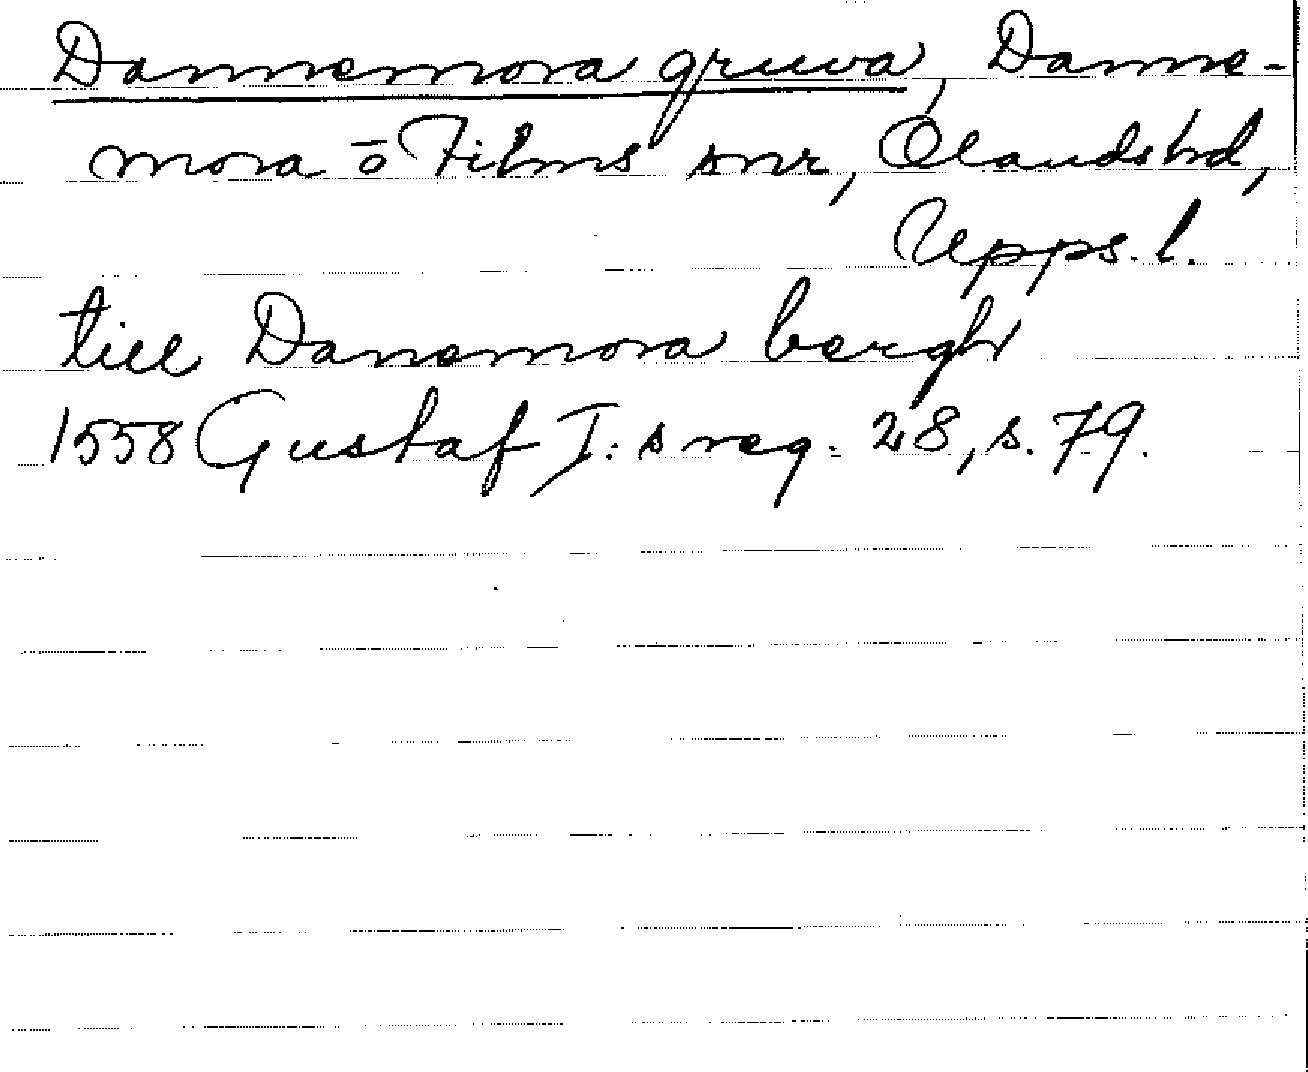 Dannemora gruva, Danne-
mora ō Films snr, Olands hd,
Upps. l.
till Danemora bergh
1558 Gustaf I: s reg. 28, s. 79.